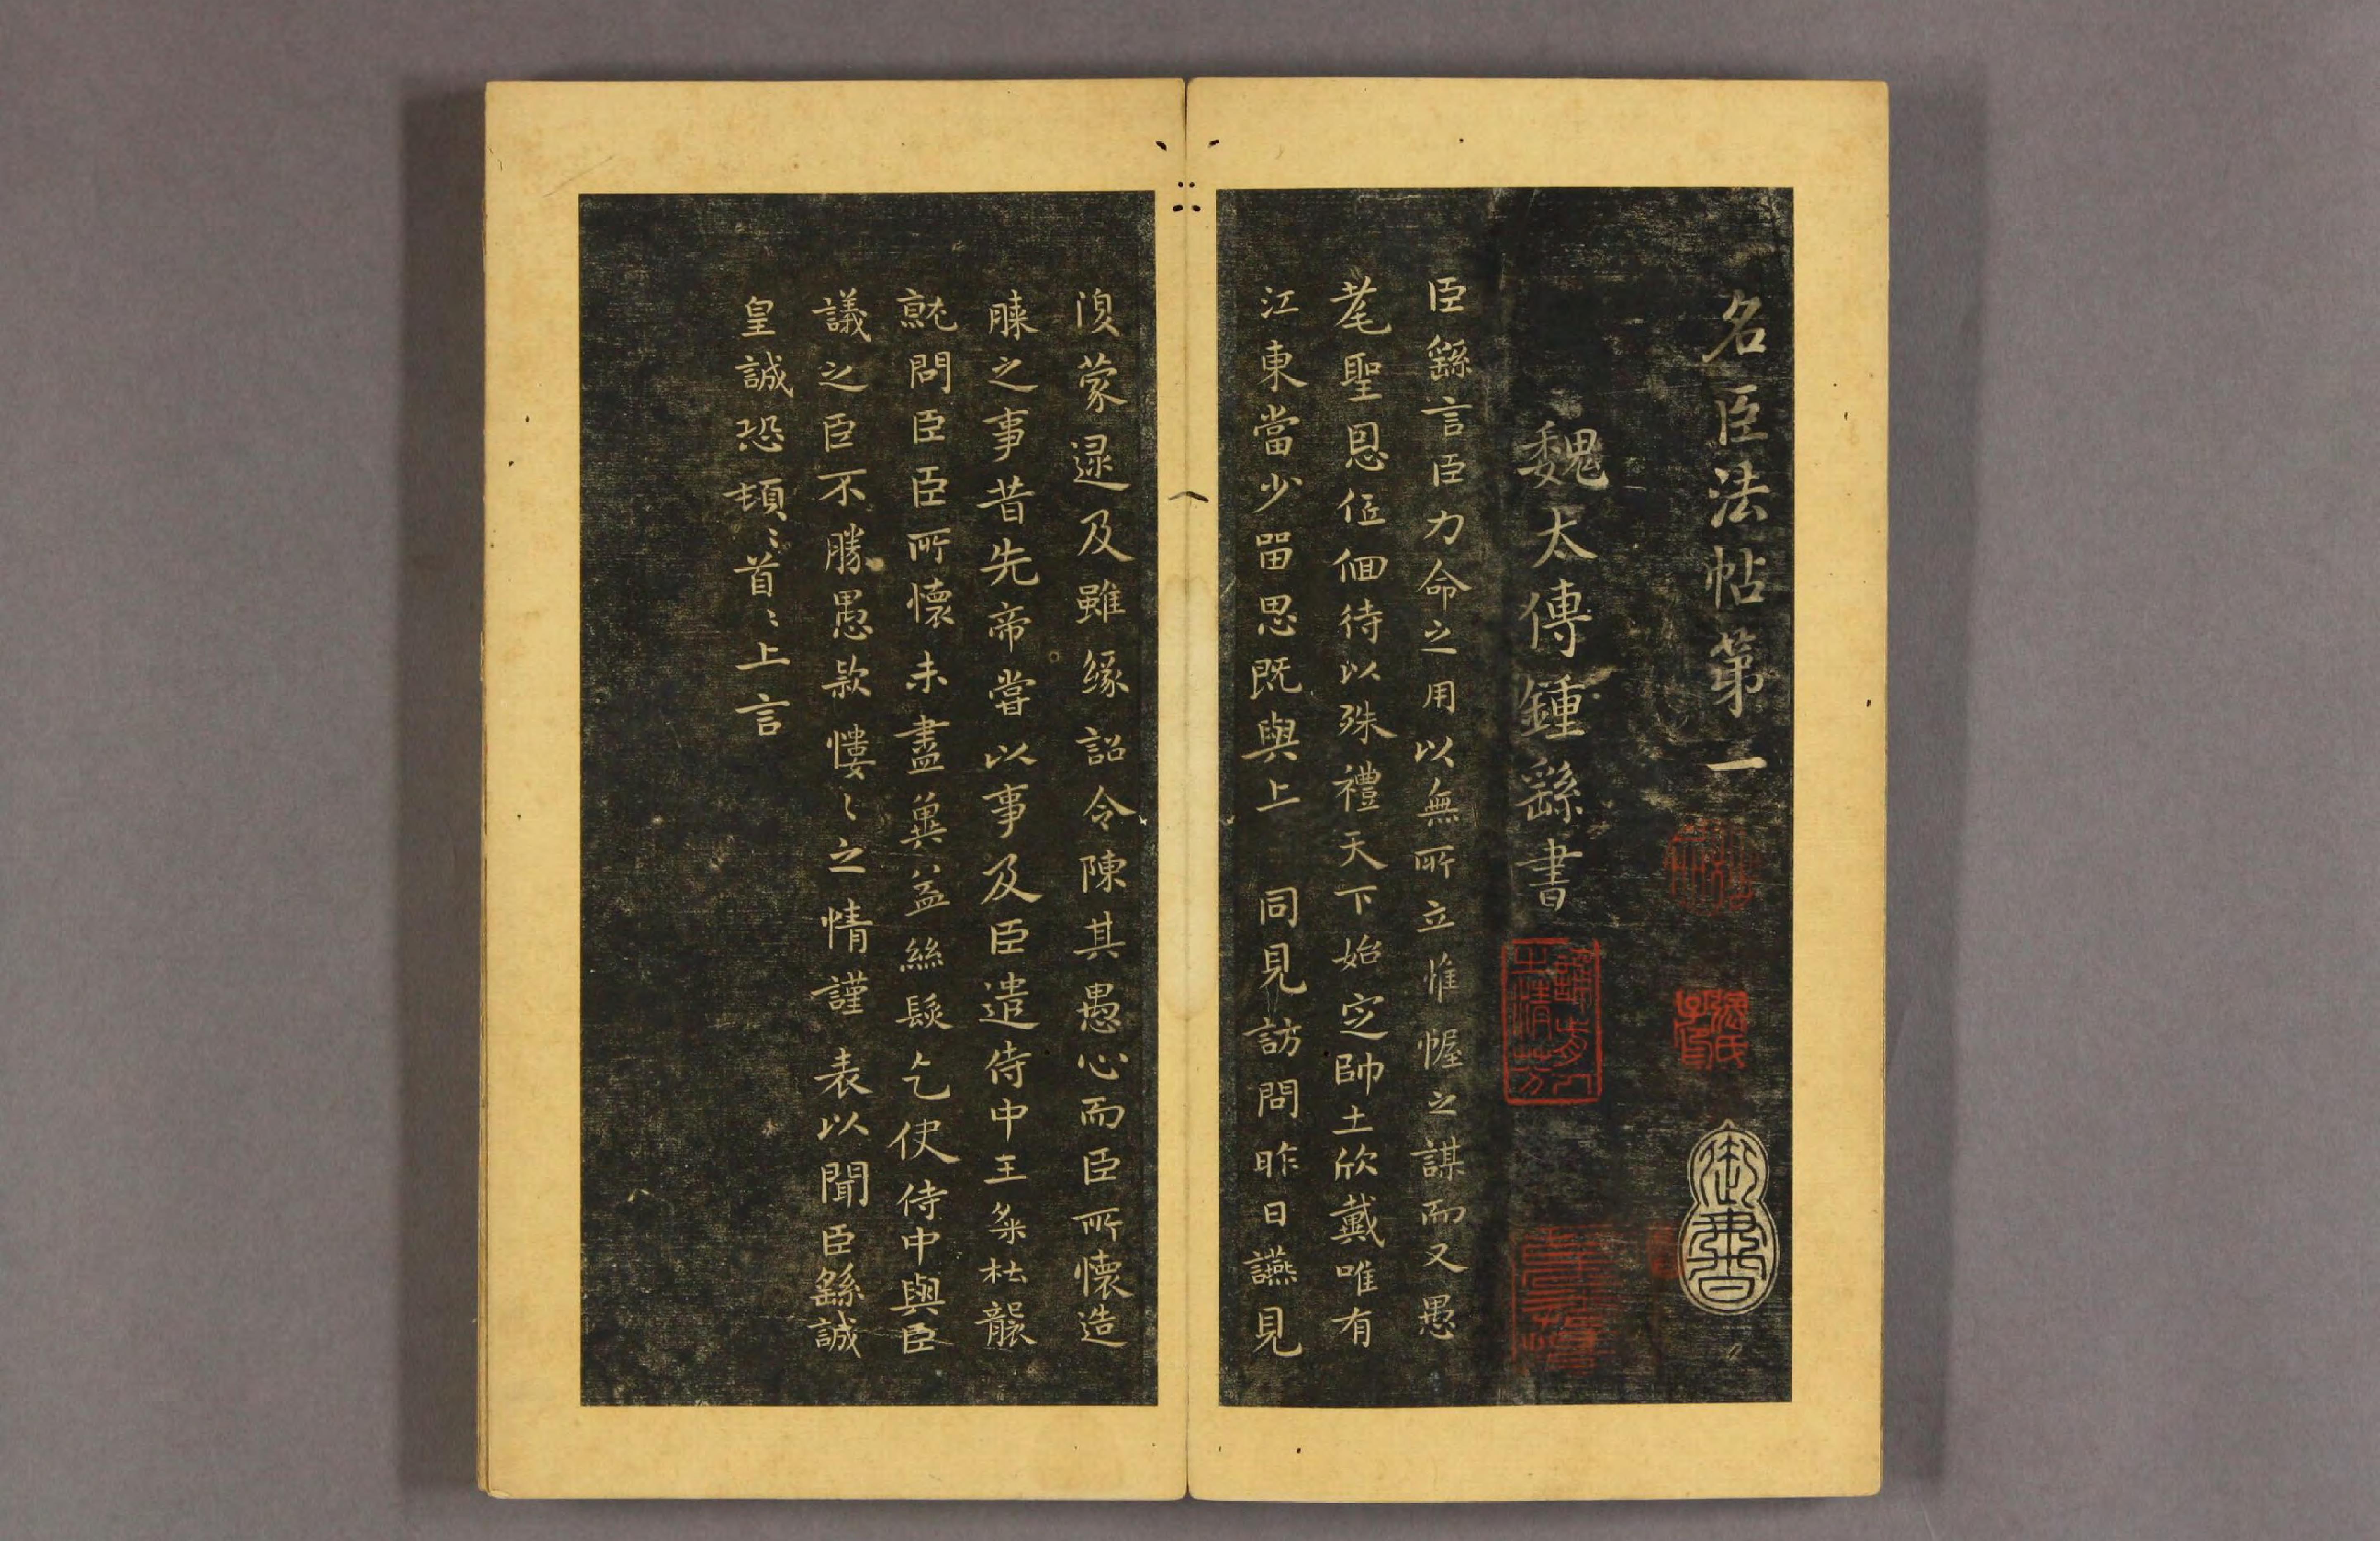 名臣法帖第一
魏太傅鍾繇書
臣繇言臣力命之用以無所立惟幄之謀而又愚
耄聖恩低佪待以殊禮天下始定帥土欣戴唯有
江東當少留思既與上 同見訪問昨日讌見
須蒙逯及雖緣詔令陳其愚心而臣所懷造
膝之事昔先帝嘗以事及臣遣侍中王粲杜襲
就問臣臣所懷未盡冀益絲髮乞使侍中與臣
議之臣不勝愚款慺〻之情謹 表以聞臣繇誠
皇誠恐頓〻首〻上言
御書